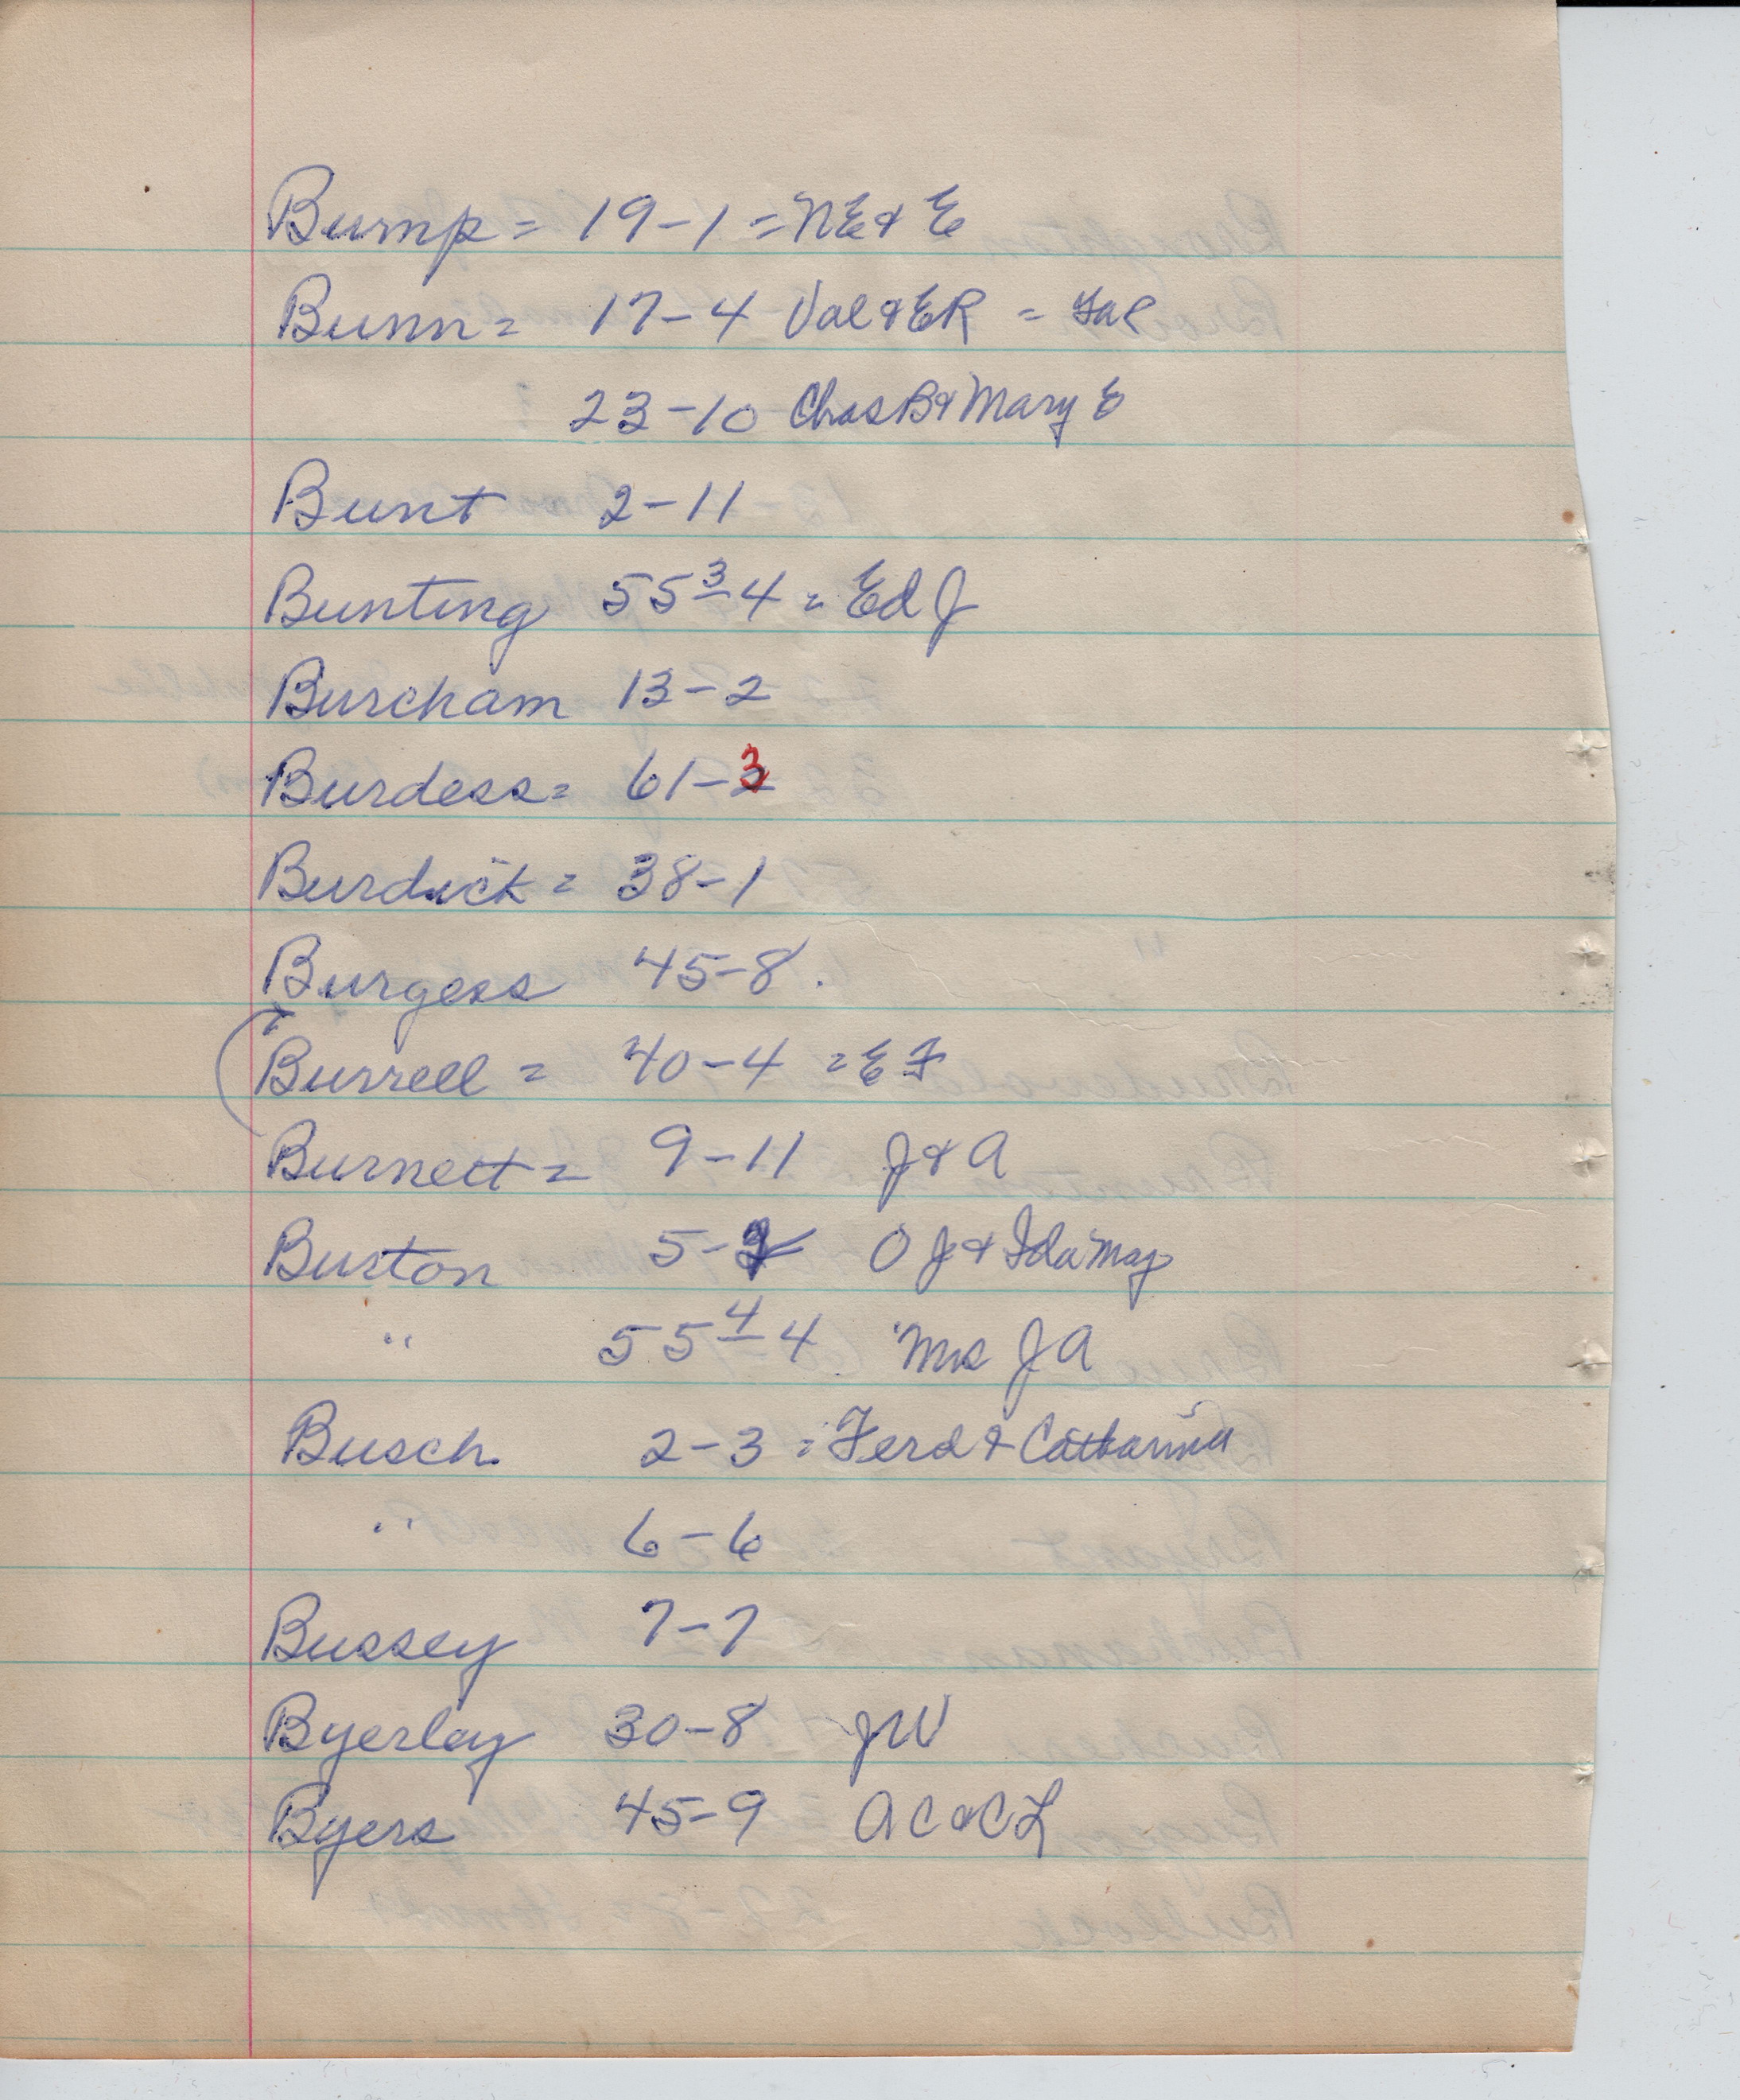 Bump = 19-1 = NE & E
Bunn = 17-4 Val & ER =
23-10 Chas B & Mary E
Bunt 2-11
Bunting 55 3/4 = Ed J
Burcham 13-2
Burdess = 61-3
Burdick = 38-1
Burgess 45-8.
Burrell = 40-4 = E F
Burnett = 9-11 J & A
Burton 5- O J & Ida May
" 55 4/4 Mrs J A
Busch 2-3 = Ferd & Catharina
" 6-6
Bussey 7-7
Byerley 30-8 JW
Byers 45-9 A C & C L